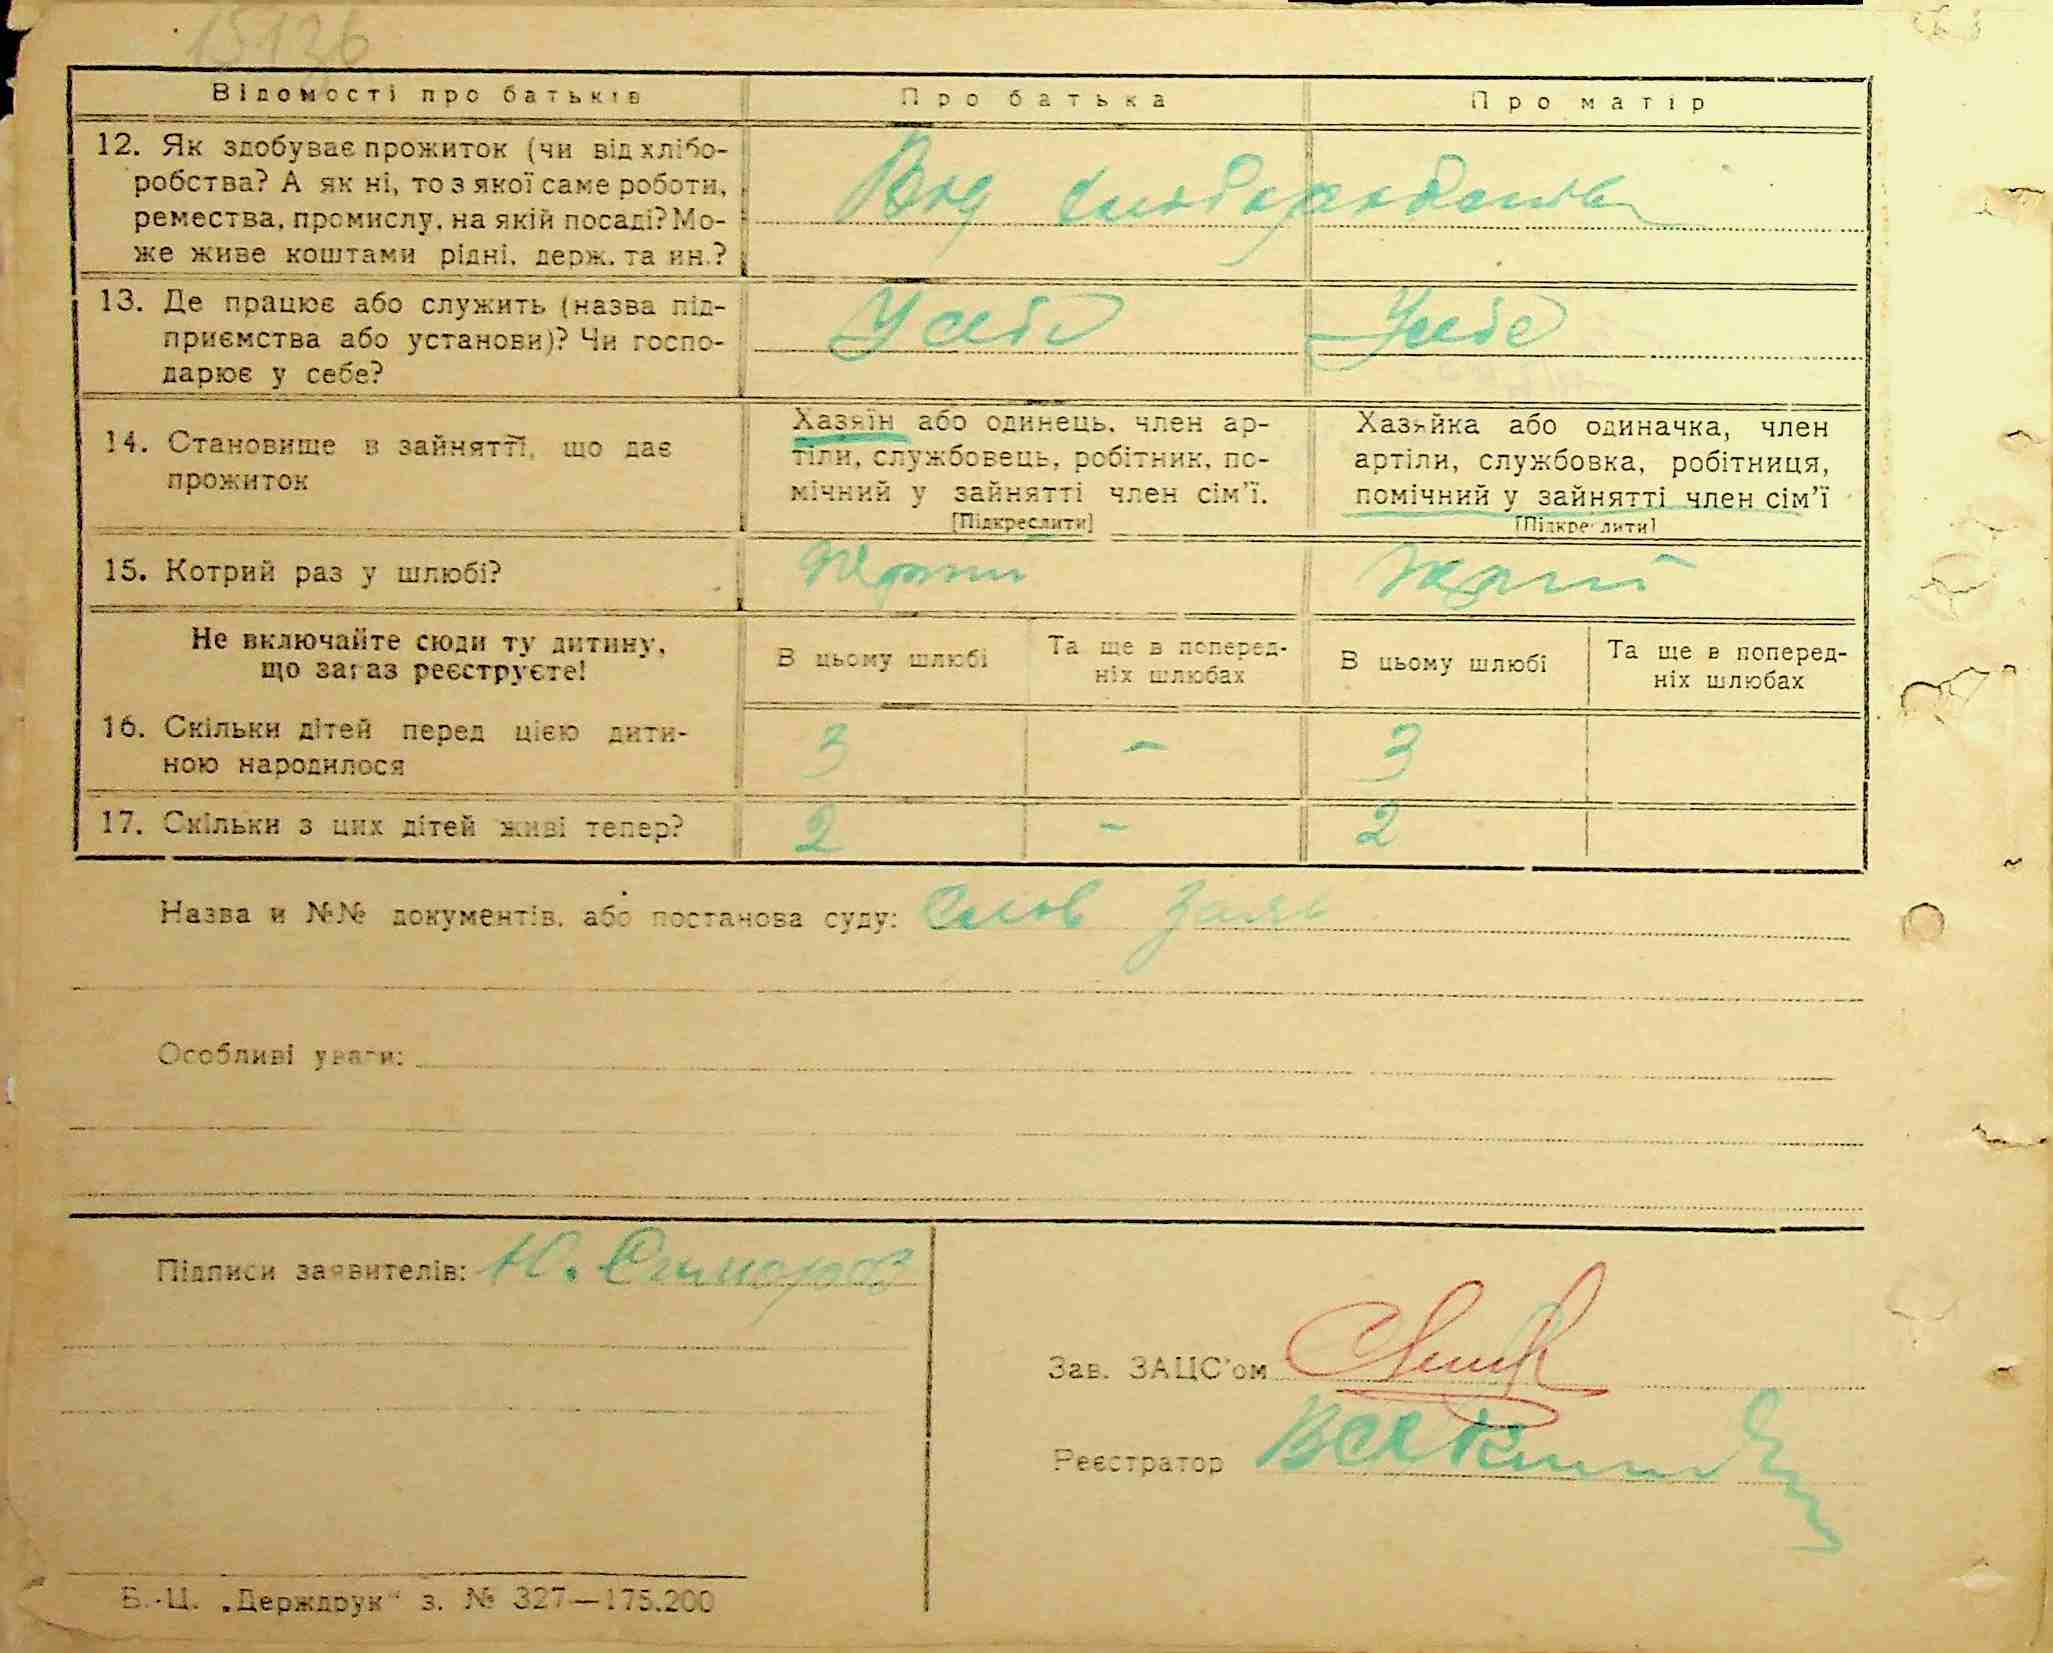 15136
Відомості про батьків
Про батька
Про матір
12. Як здобуває прожиток (чи від хлібо-
робства? А як ні, то з якої саме роботи,
ремества, промислу, на якій посаді? Мо-
же живе коштами рідні, держ. та ин.?
Від хліборобства
13. Де працює або служить (назва під-
приємства або установи)? Чи госпо-
дарює у себе?
У себе
У себе
14. Становище в зайнятті, що дає
прожиток
Хазяїн або одинець, член ар-
тіли, службовець, робітник, по-
мічний у зайнятті член сім'ї.
[Підкреслити]
Хазяйка або одиначка, член
артіли, службовка, робітниця,
помічний у зайнятті член сім'ї
[Підкреслити]
15. Котрий раз у шлюбі?
Не включайте сюди ту дитину,
що зараз реєструєте!
В цьому шлюбі
Та ще в поперед-
ніх шлюбах
В цьому шлюбі
Та ще в поперед-
ніх шлюбах
16. Скільки дітей перед цією дити-
ною народилося
3
-
3
17. Скільки з цих дітей живі тепер?
2
-
2
Назва и №№ документів, або постанова суду: Слов заяв
Особливі уваги:
Підписи заявителів:
Зав. ЗАЦС'ом
Реєстратор
Б.-Ц. „Держдрук" з. № 327—175.200